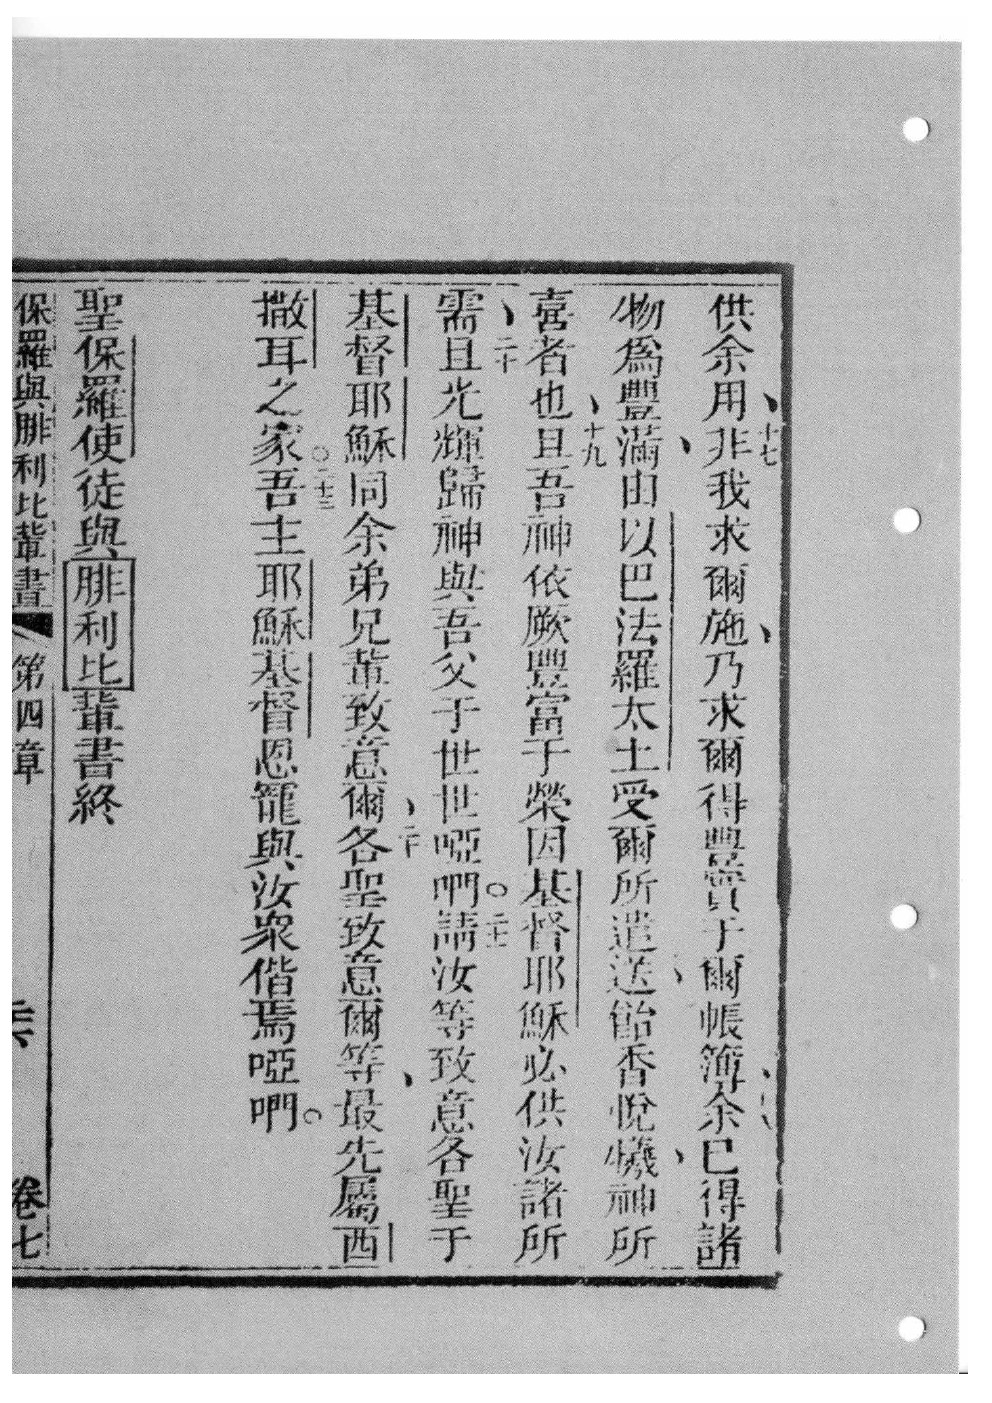 供余用十七非我求爾施乃求爾得豐于爾帳簿余已得諸
物為豐滿由以巴法羅太土受爾所遣送飴香悅犧神所
喜者也十九且吾神依厥豐富于榮因基督耶穌必供汝諸所
需二十且光輝歸神與吾父于世世啞啊○請汝等致意各聖于
基督耶穌同余弟兄輩致意爾各聖致意爾等最先屬西
撒耳之家○二十三吾主耶穌基督恩寵與汝衆偕焉啞啊○
聖保羅使徒與腓利比輩書終
保羅與腓利比輩書 第四章 卷七